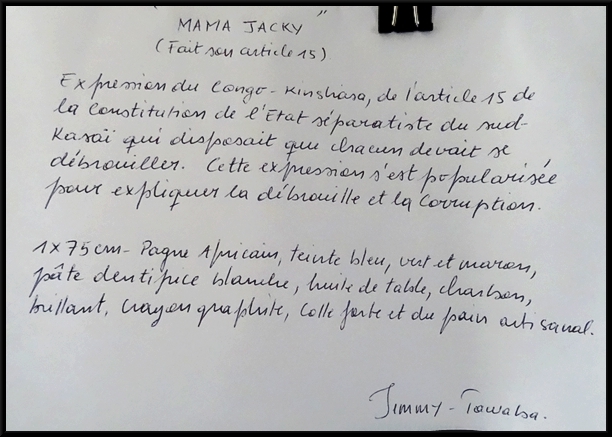 " "
MAMA JACKY
(Fait son article 15)
Expression du Congo-Kinshasa, de l'article 15 de
la Constitution de l'Etat séparatiste du sud-
Kasaï qui disposait que chacun devait se
débrouiller. Cette expression s'est popularisée
pour expliquer la débrouille et la corruption.
1x75cm- Pagne Africain, teinte bleu, vert et maron,
pâte dentifrice blanche, huile de table, charbon,
brillant, Crayon graphite, Colle forte et du pain artisanal.
Jimmy-Tawaba.